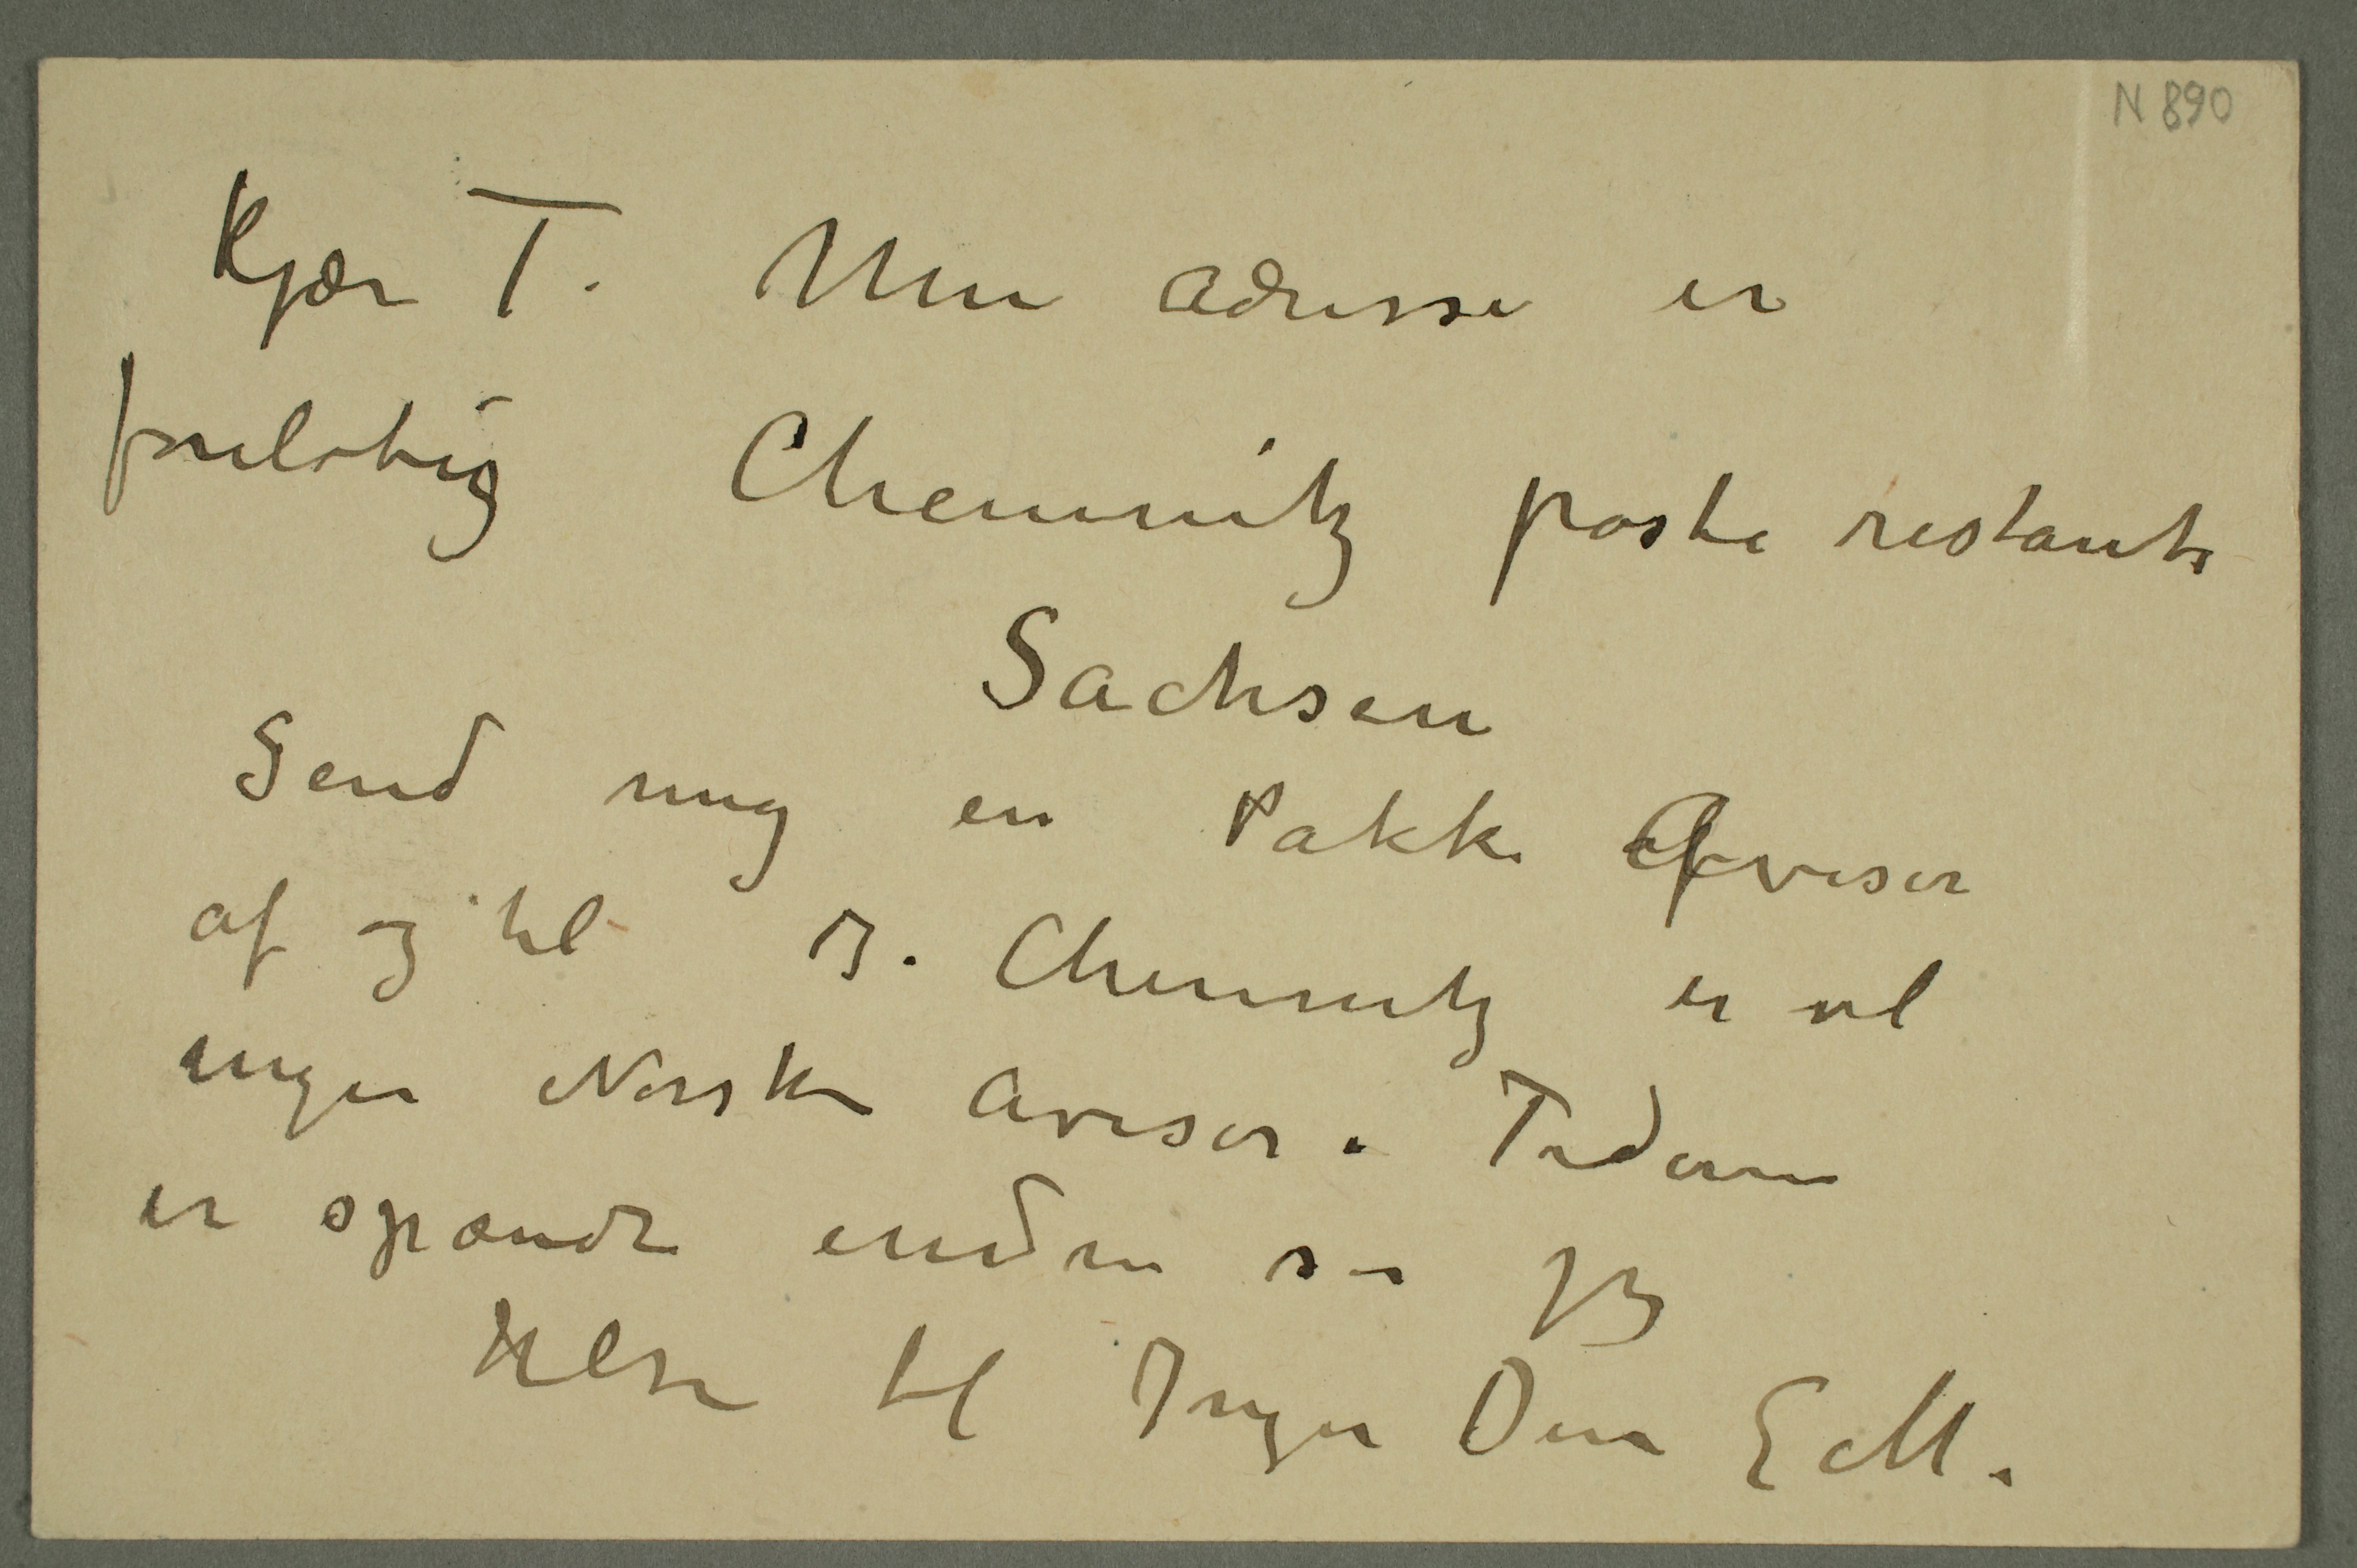 N 890
Kjær T. Min adresse er
foreløbig Chemnitz poste restante
Sachsen
Send mig en Pakke Aviser
af og til I. Chemnitz er vel
ingen Norske Aviser. Tiderne
er spændte endnu sa jeg
Hilsen til Inger Din E M.